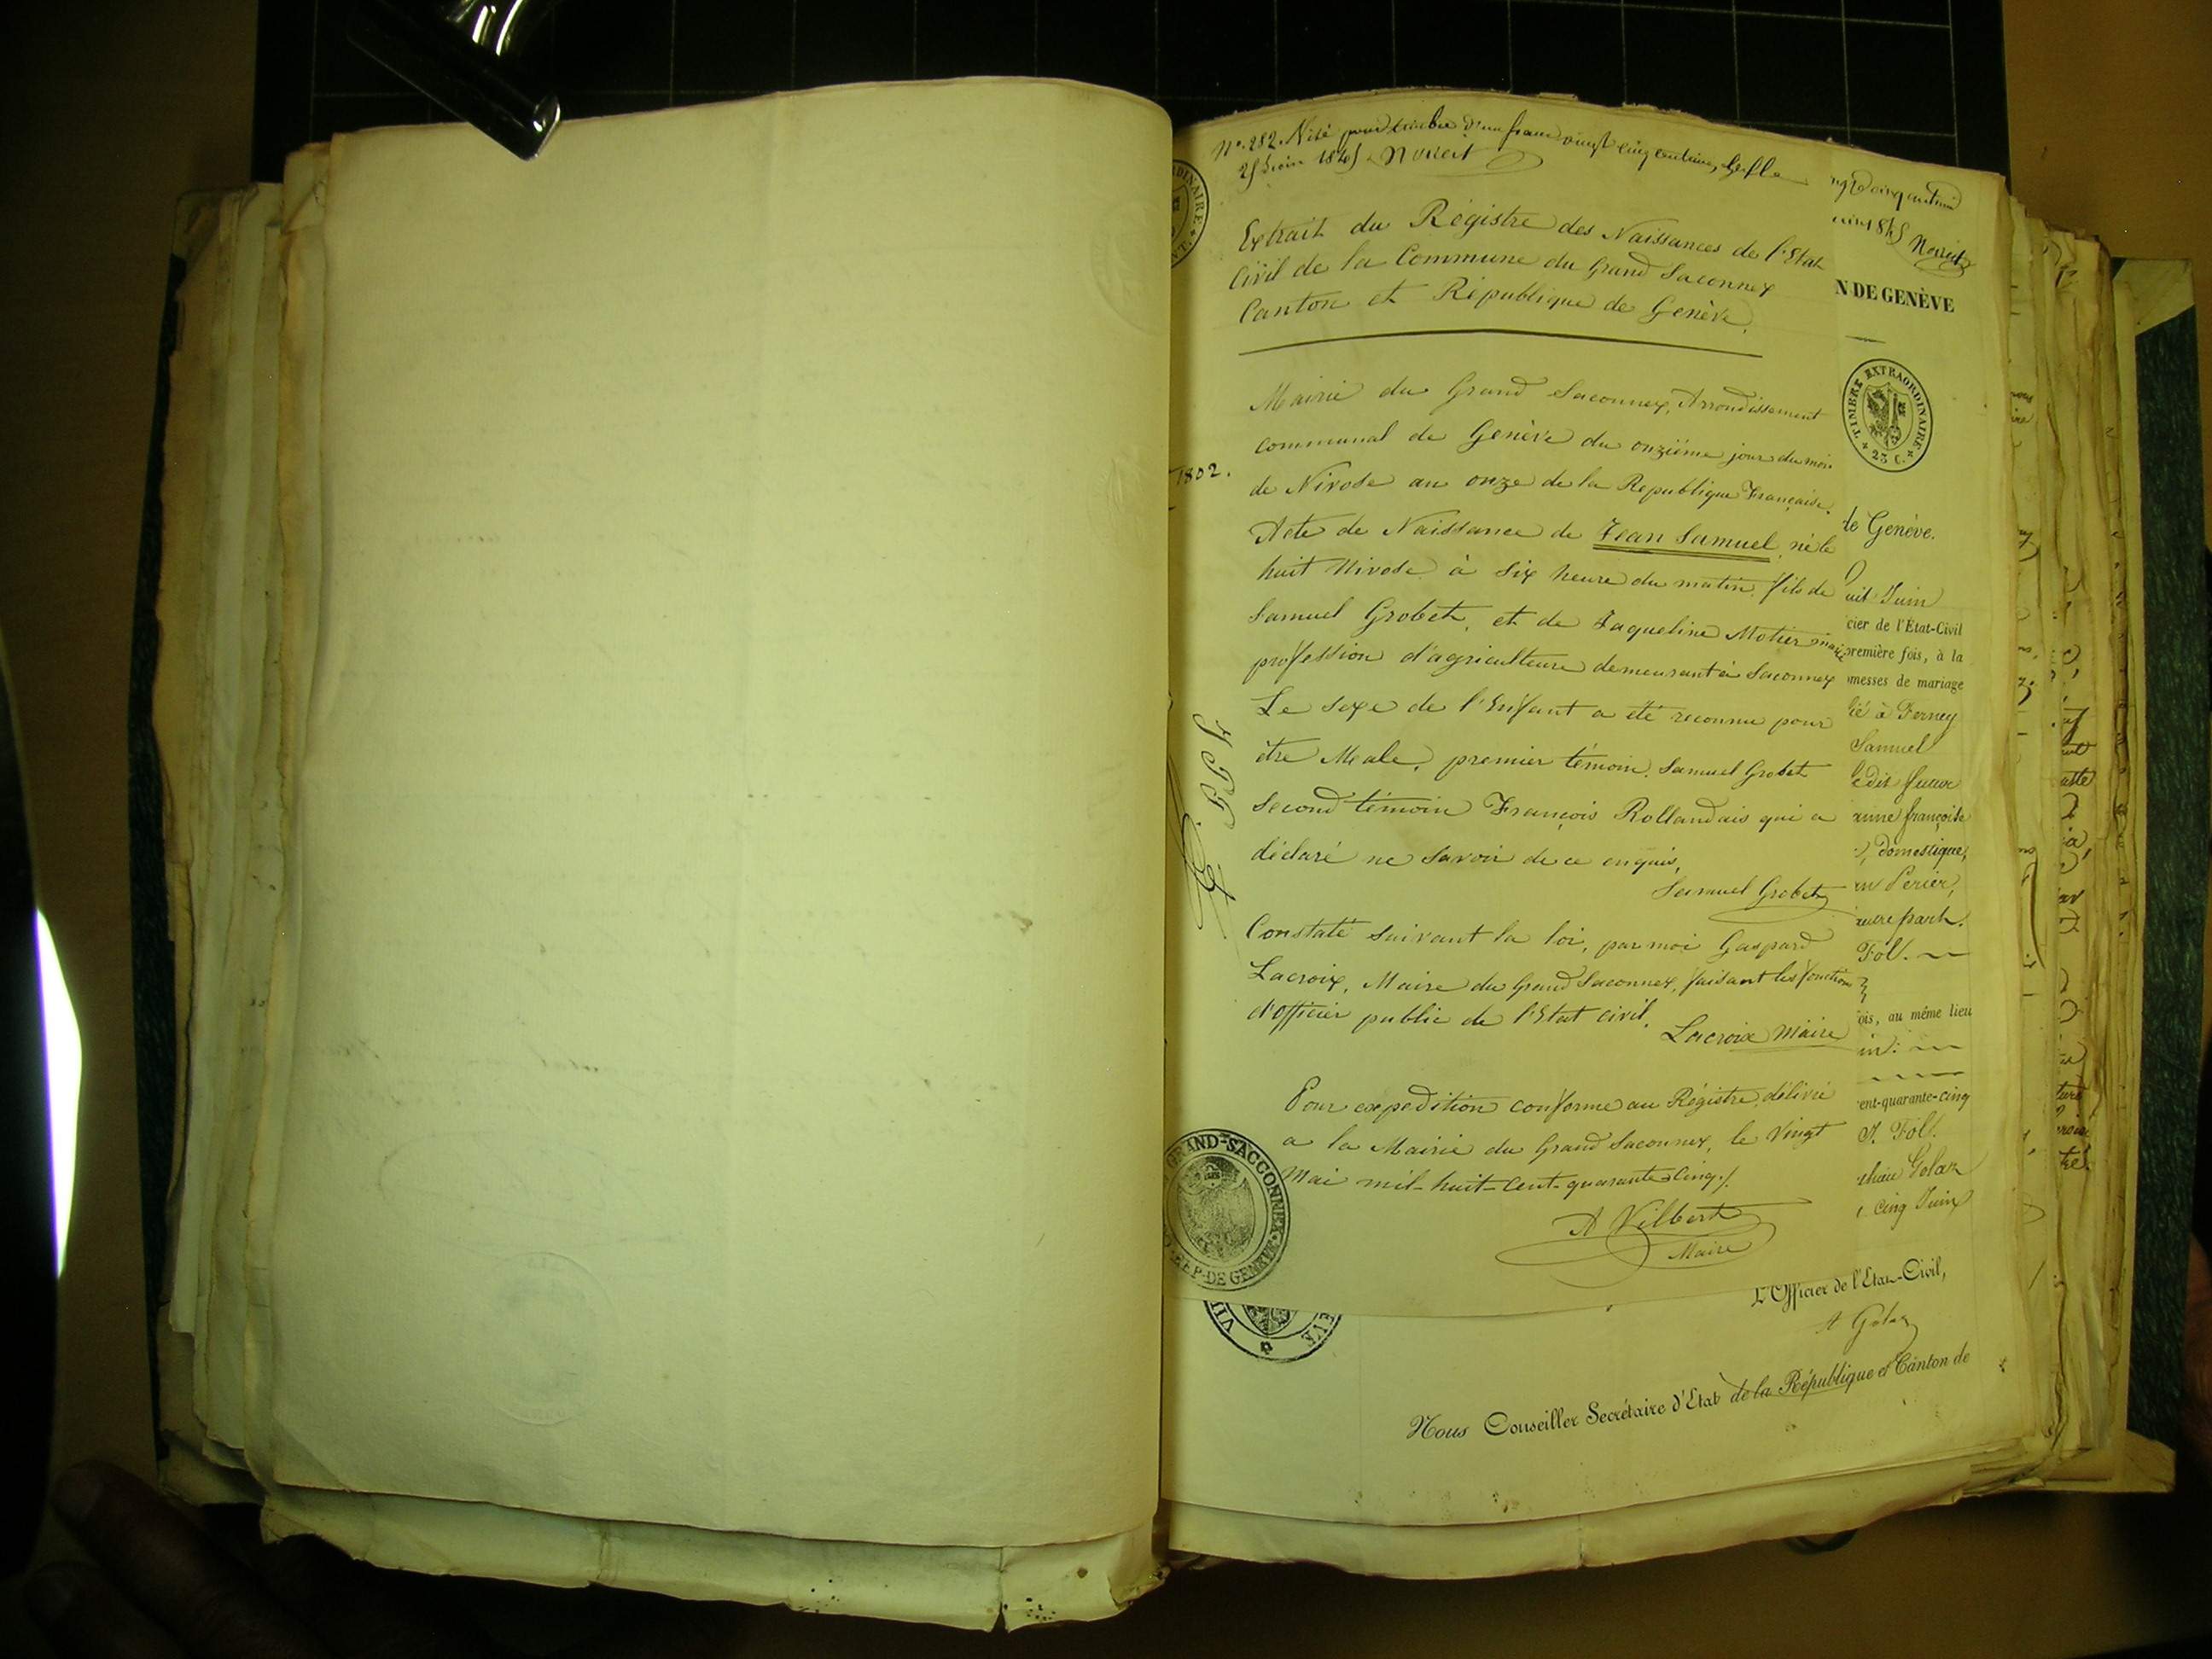 N°. 282. Visé pour timbre d'un franc vingt cinq centimes,
25 Juin 1845 Noirit
Extrait du Régistre des Naissances de l'Etat
Civil de la Commune du Grand Saconnex
Canton et République de Genève.
Mairie du Grand Saconnex, Arrondissement
communal de Genève du onzième jour du mois
1802.
de Nivose an onze de la Republique Française.
Acte de Naissance de Jean Samuel, né le
huit Nivose à six heure du matin, fils de
Samuel Grobet, et de Jaqueline Motier
profession d'agriculteur demeurant à Saconnex
Le sexe de l'Enfant a été reconnu pour
être Meale, premier témoin, Samuel Grobet
Second témoin François Rollandais qui a
déclaré ne savoir de ce enquis,
Samuel Grobet
Constaté suivant la loi, par moi Gaspard
Lacroix, Maire du Grand Saconnex, faisant les fonctions
d'officier public de l'Etat civil.
Lacroix Maire
Pour expedition conforme au Régistre, délivré
a la Mairie du Grand Saconnex, le Vingt
Mai mil-huit-Cent-quarante-Cinq./.
A Vilbert
Maire
GRAND-SACCONNEX
REP. DE GENEVE
Noirit
N DE GENÈVE
TIMBRE EXTRAORDINAIRE
25 C.
de Genève.
uit Juin
cier de l'État-Civil
première fois, à la
messes de mariage
lié à Ferney
Samuel
ledit futur
anne françoise
domestique,
Perier,
autre part.
Foll.
ois, au même lieu
ent-quarante-cinq
J. Foll.
Golaz
Cinq Juin
L'Officier de l'Etat-Civil,
A Golaz
Nous Conseiller Secrétaire d'Etat de la République et Canton de